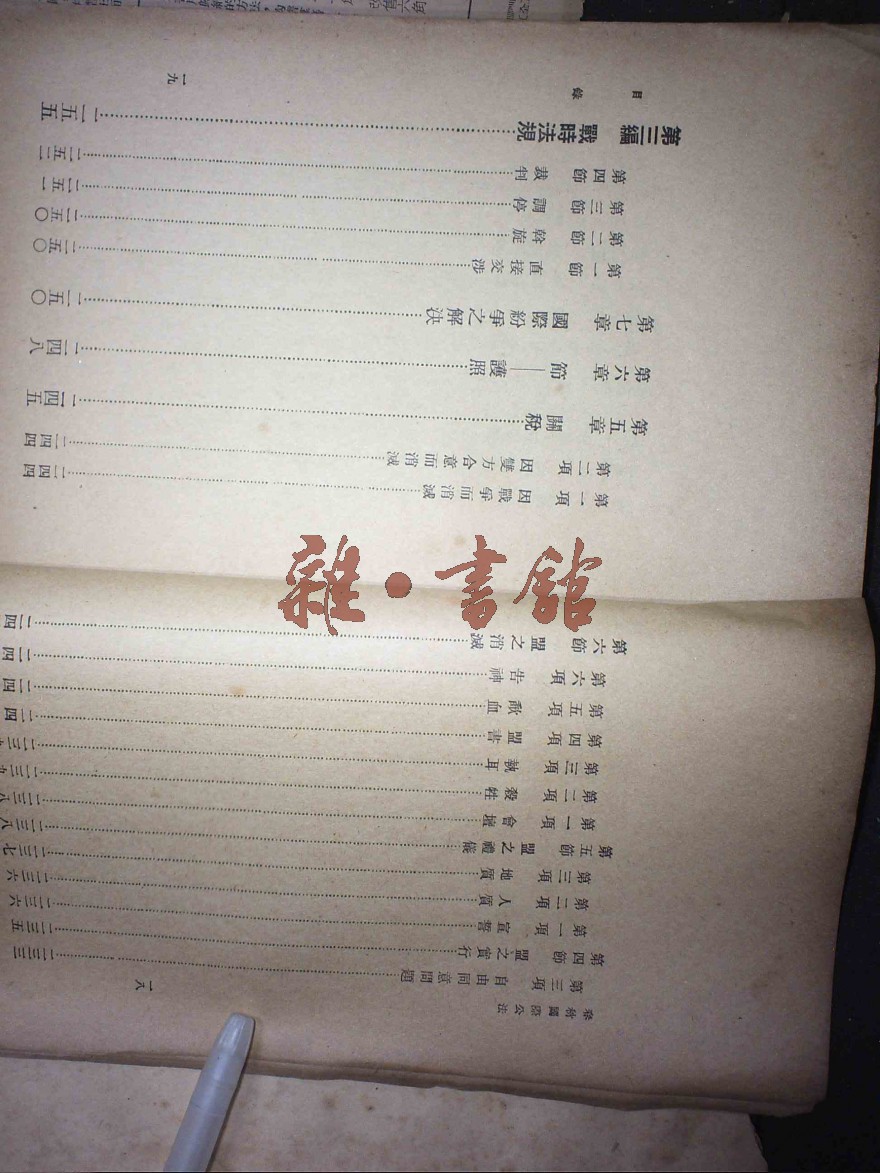 春秋國際公法
第三項 自由同意問題……二三三
第四節 盟之實行……二三五
第一項 宣誓……二三六
第二項 人質……二三六
第三項 地質……二三七
第五節 盟之禮儀……二三八
第一項 會壇……二三八
第二項 殺牲……二三九
第三項 執耳……二三九
第四項 盟書……二四
第五項 歃血……二四
第六項 告神……二四
第六節 盟之消滅……二四
一八
目錄
第一項 因戰爭而消滅……二四四
第二項 因雙方合意而消滅……二四四
第五章 關稅……二四五
第六章 節——護照……二四八
第七章 國際紛爭之解決……二五〇
第一節 直接交涉……二五〇
第二節 斡旋……二五〇
第三節 調停……二五一
第四節 裁判……二五二
第三編 戰時法規……二五五
一九
雜·書館